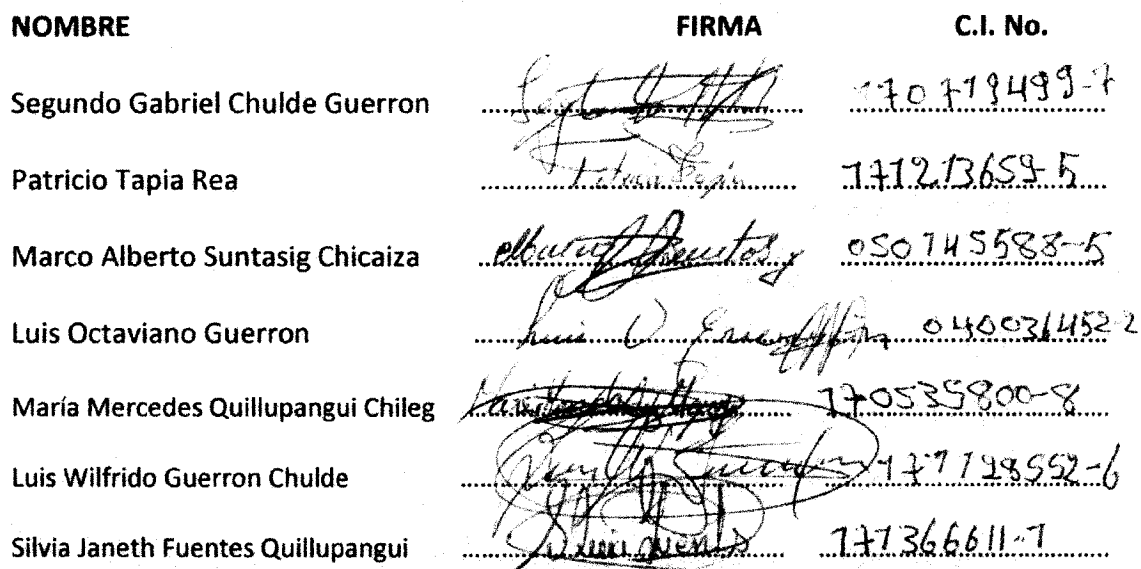 NOMBRE FIRMA C.I. No.
Segundo Gabriel Chulde Guerron 170719499-7
Patricio Tapia Rea 171213659-5
Marco Alberto Suntasig Chicaiza 050745588-5
Luis Octaviano Guerron Luis O 040036452-2
María Mercedes Quillupangui Chileg 170535800-8
Luis Wilfrido Guerron Chulde 171198552-6
Silvia Janeth Fuentes Quillupangui 171366611-1